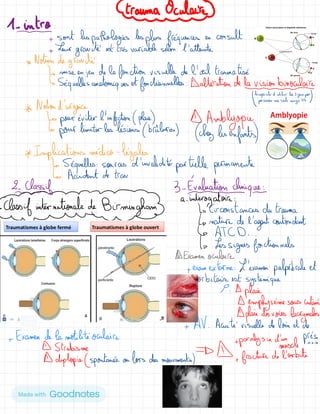 Trauma Oculaire
1. intro
+ sont les pathologies les plus fréquentes en consult
+ Leur gravité est très variable selon l'atteinte.
* Notion de gravité
mise en jeu de la fonction visuelle de l'œil traumatisé
Séquelles anatomiques et fonctionnelles
altération de la vision binoculaire
* Notion d'urgence
pour éviter l'infection (plaie)
pour limiter les lésions (brûlures)
Amblyopie
(chez les enfants)
Amblyopie
* Implications médico-légales
Séquelles: sources d'invalidité partielle permanente
Accident de trav
2. Classif
Classif internationale de Birmingham
Traumatismes à globe fermé
Traumatismes à globe ouvert
Lacération lamellaire
Corps étrangers superficiels
Lacérations
pénétrante
perforante
CEIO
Contusion
Rupture
3. Evaluation clinique:
a. interrogatoire:
Circonstances du trauma
nature de l'agent contondant
ATCD.
Les signes fonctionnels
Examen oculaire
+ exam externe: L'examen palpébrale et
orbitaire est systémique
plaie
emphysème sous cutané
plaie des voies lacrymales
+ AV: Acuité visuelle de loin et de près
+ Examen de la motilité oculaire
Strabisme
diplopie (spontanée ou lors des mouvements)
+ paralysie d'un muscle
+ fracture de l'orbite
Made with Goodnotes